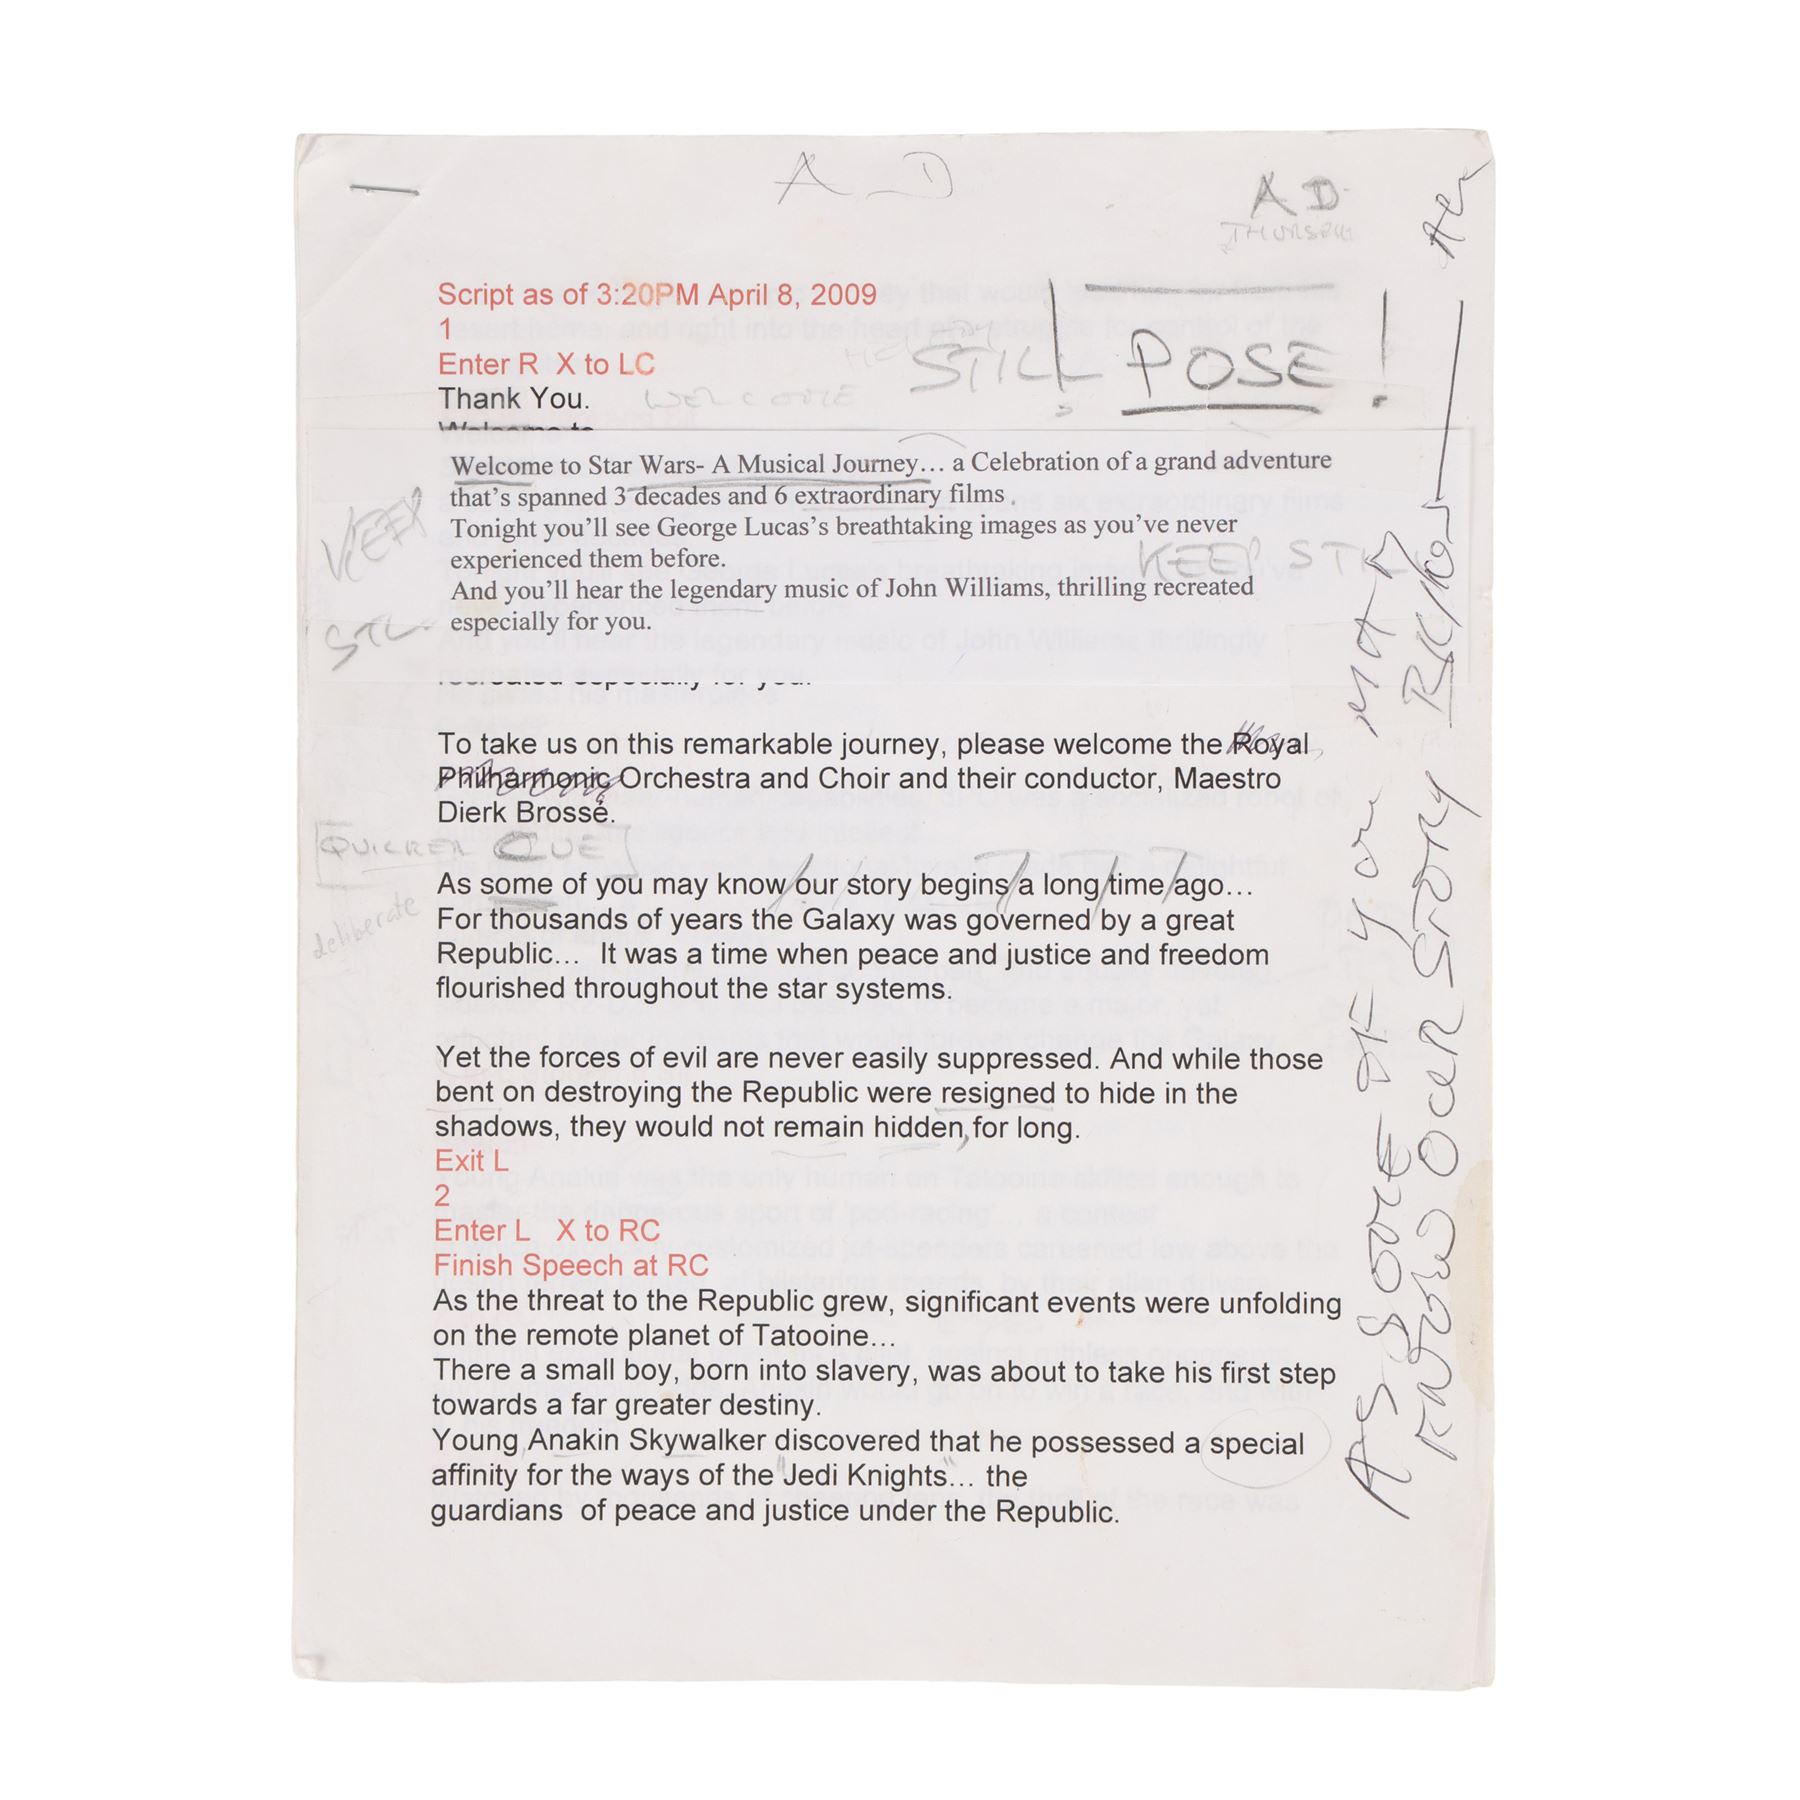 A D
A D
Script as of 3:20PM April 8, 2009
1
Enter R X to LC
STILL POSE!
Thank You.
WELCOME
Welcome to Star Wars- A Musical Journey… a Celebration of a grand adventure
that’s spanned 3 decades and 6 extraordinary films.
Tonight you’ll see George Lucas’s breathtaking images as you’ve never
experienced them before.
KEEP
And you’ll hear the legendary music of John Williams, thrilling recreated
especially for you.
KEEP
To take us on this remarkable journey, please welcome the Royal
Philharmonic Orchestra and Choir and their conductor, Maestro
Dierk Brossé.
QUICKER CUE
As some of you may know our story begins a long time ago…
deliberate
For thousands of years the Galaxy was governed by a great
Republic… It was a time when peace and justice and freedom
flourished throughout the star systems.
Yet the forces of evil are never easily suppressed. And while those
bent on destroying the Republic were resigned to hide in the
shadows, they would not remain hidden, for long.
Exit L
2
Enter L X to RC
Finish Speech at RC
As the threat to the Republic grew, significant events were unfolding
on the remote planet of Tatooine…
There a small boy, born into slavery, was about to take his first step
towards a far greater destiny.
Young, Anakin Skywalker discovered that he possessed a special
affinity for the ways of the "Jedi Knights"… the
guardians of peace and justice under the Republic.
AS SOME OF YOU MAY
KNOW OUR STORY